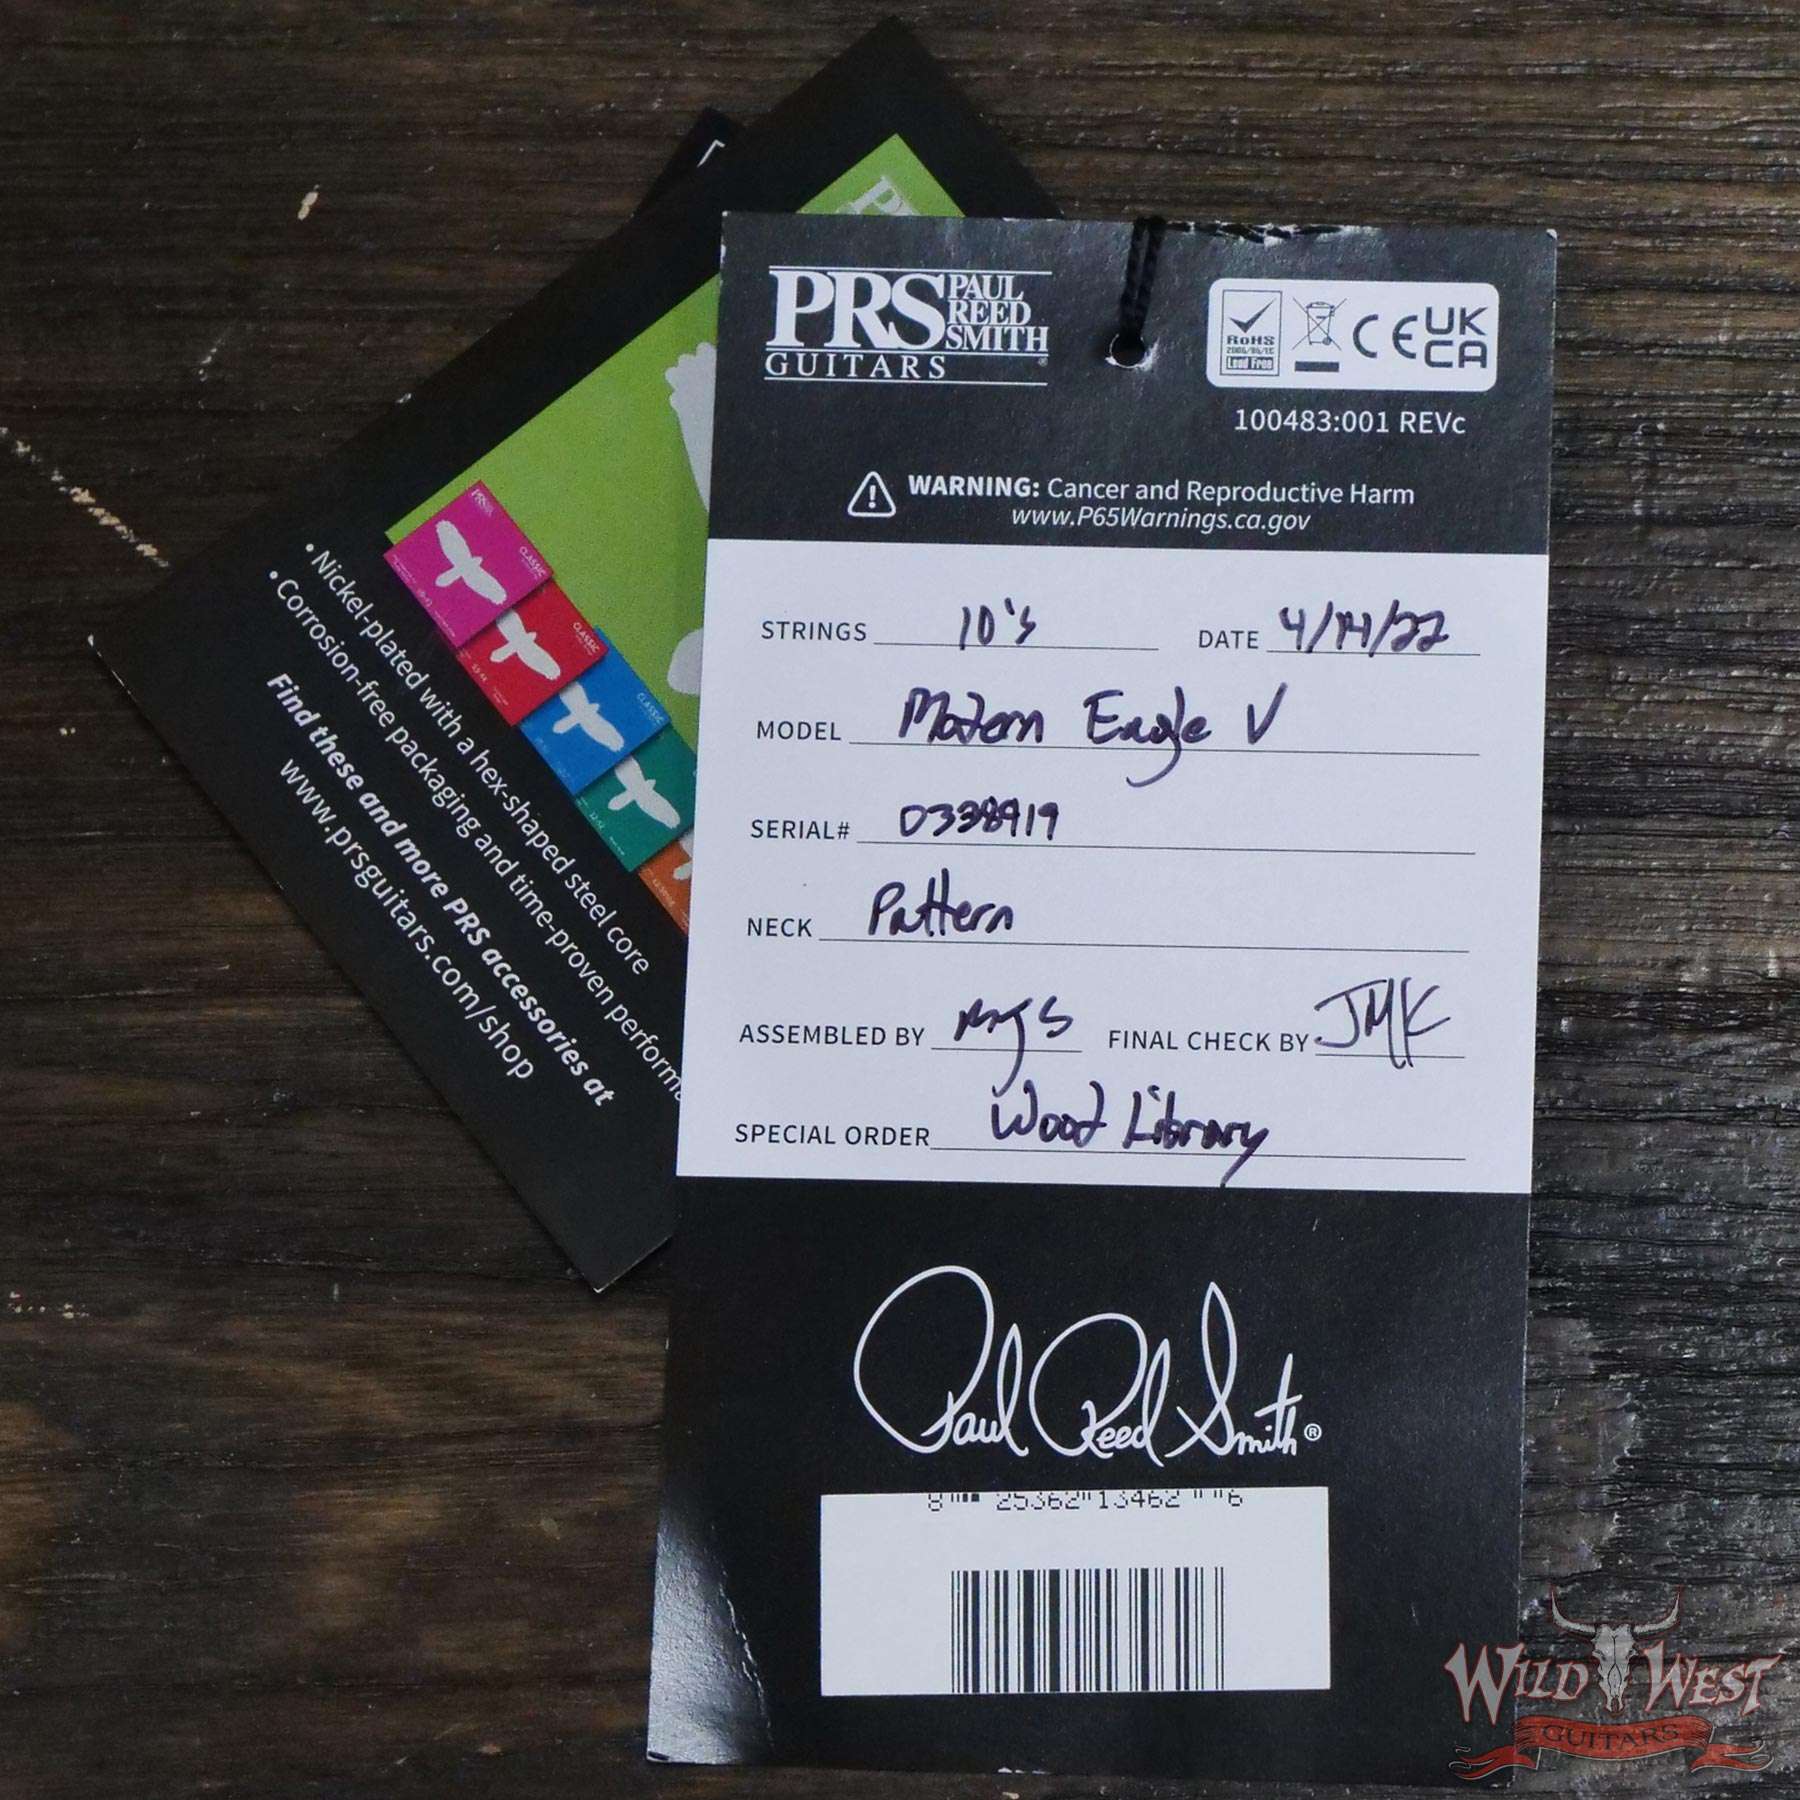 PRS PAUL REED SMITH
GUITARS
RoHS
2006/95/EC
Lead Free
CE UK CA
100483:001 REVc
WARNING: Cancer and Reproductive Harm
www.P65Warnings.ca.gov
STRINGS 10's DATE 4/14/22
MODEL Modern Eagle V
SERIAL# 0338919
NECK Pattern
ASSEMBLED BY FINAL CHECK BY JMK
SPECIAL ORDER Wood Library
Paul Reed Smith®
8 25362 13462 6
• Nickel-plated with a hex-shaped steel core
• Corrosion-free packaging and time-proven
Find these and more PRS accessories at
www.prsguitars.com/shop
PRS
CLASSIC
CLASSIC
CLASSIC
WILD WEST
GUITARS